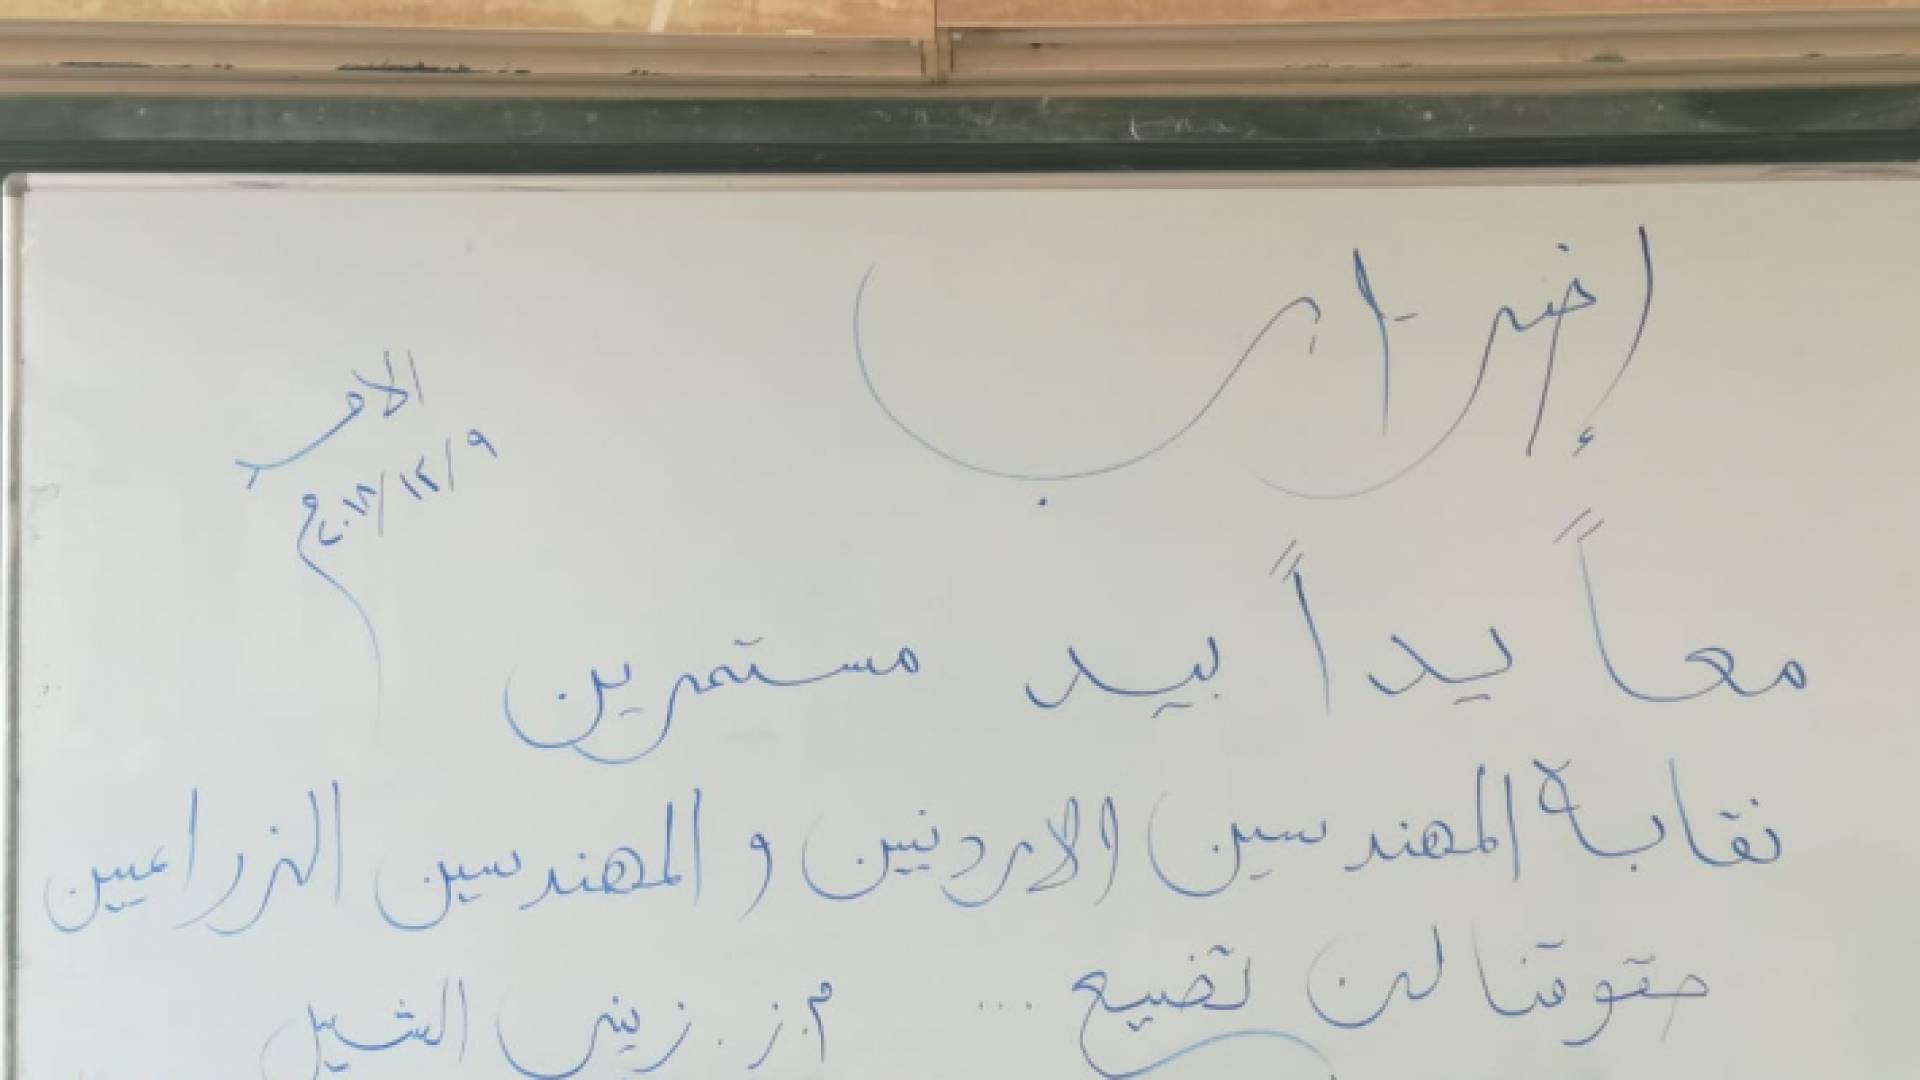 إضراب
الاحد
٩/١٢/٢٠١٨م
معاً يداً بيد مستمرين
نقابة المهندسين الاردنيين و المهندسين الزراعيين
حقوقنا لن تضيع ... م.ز. زينب